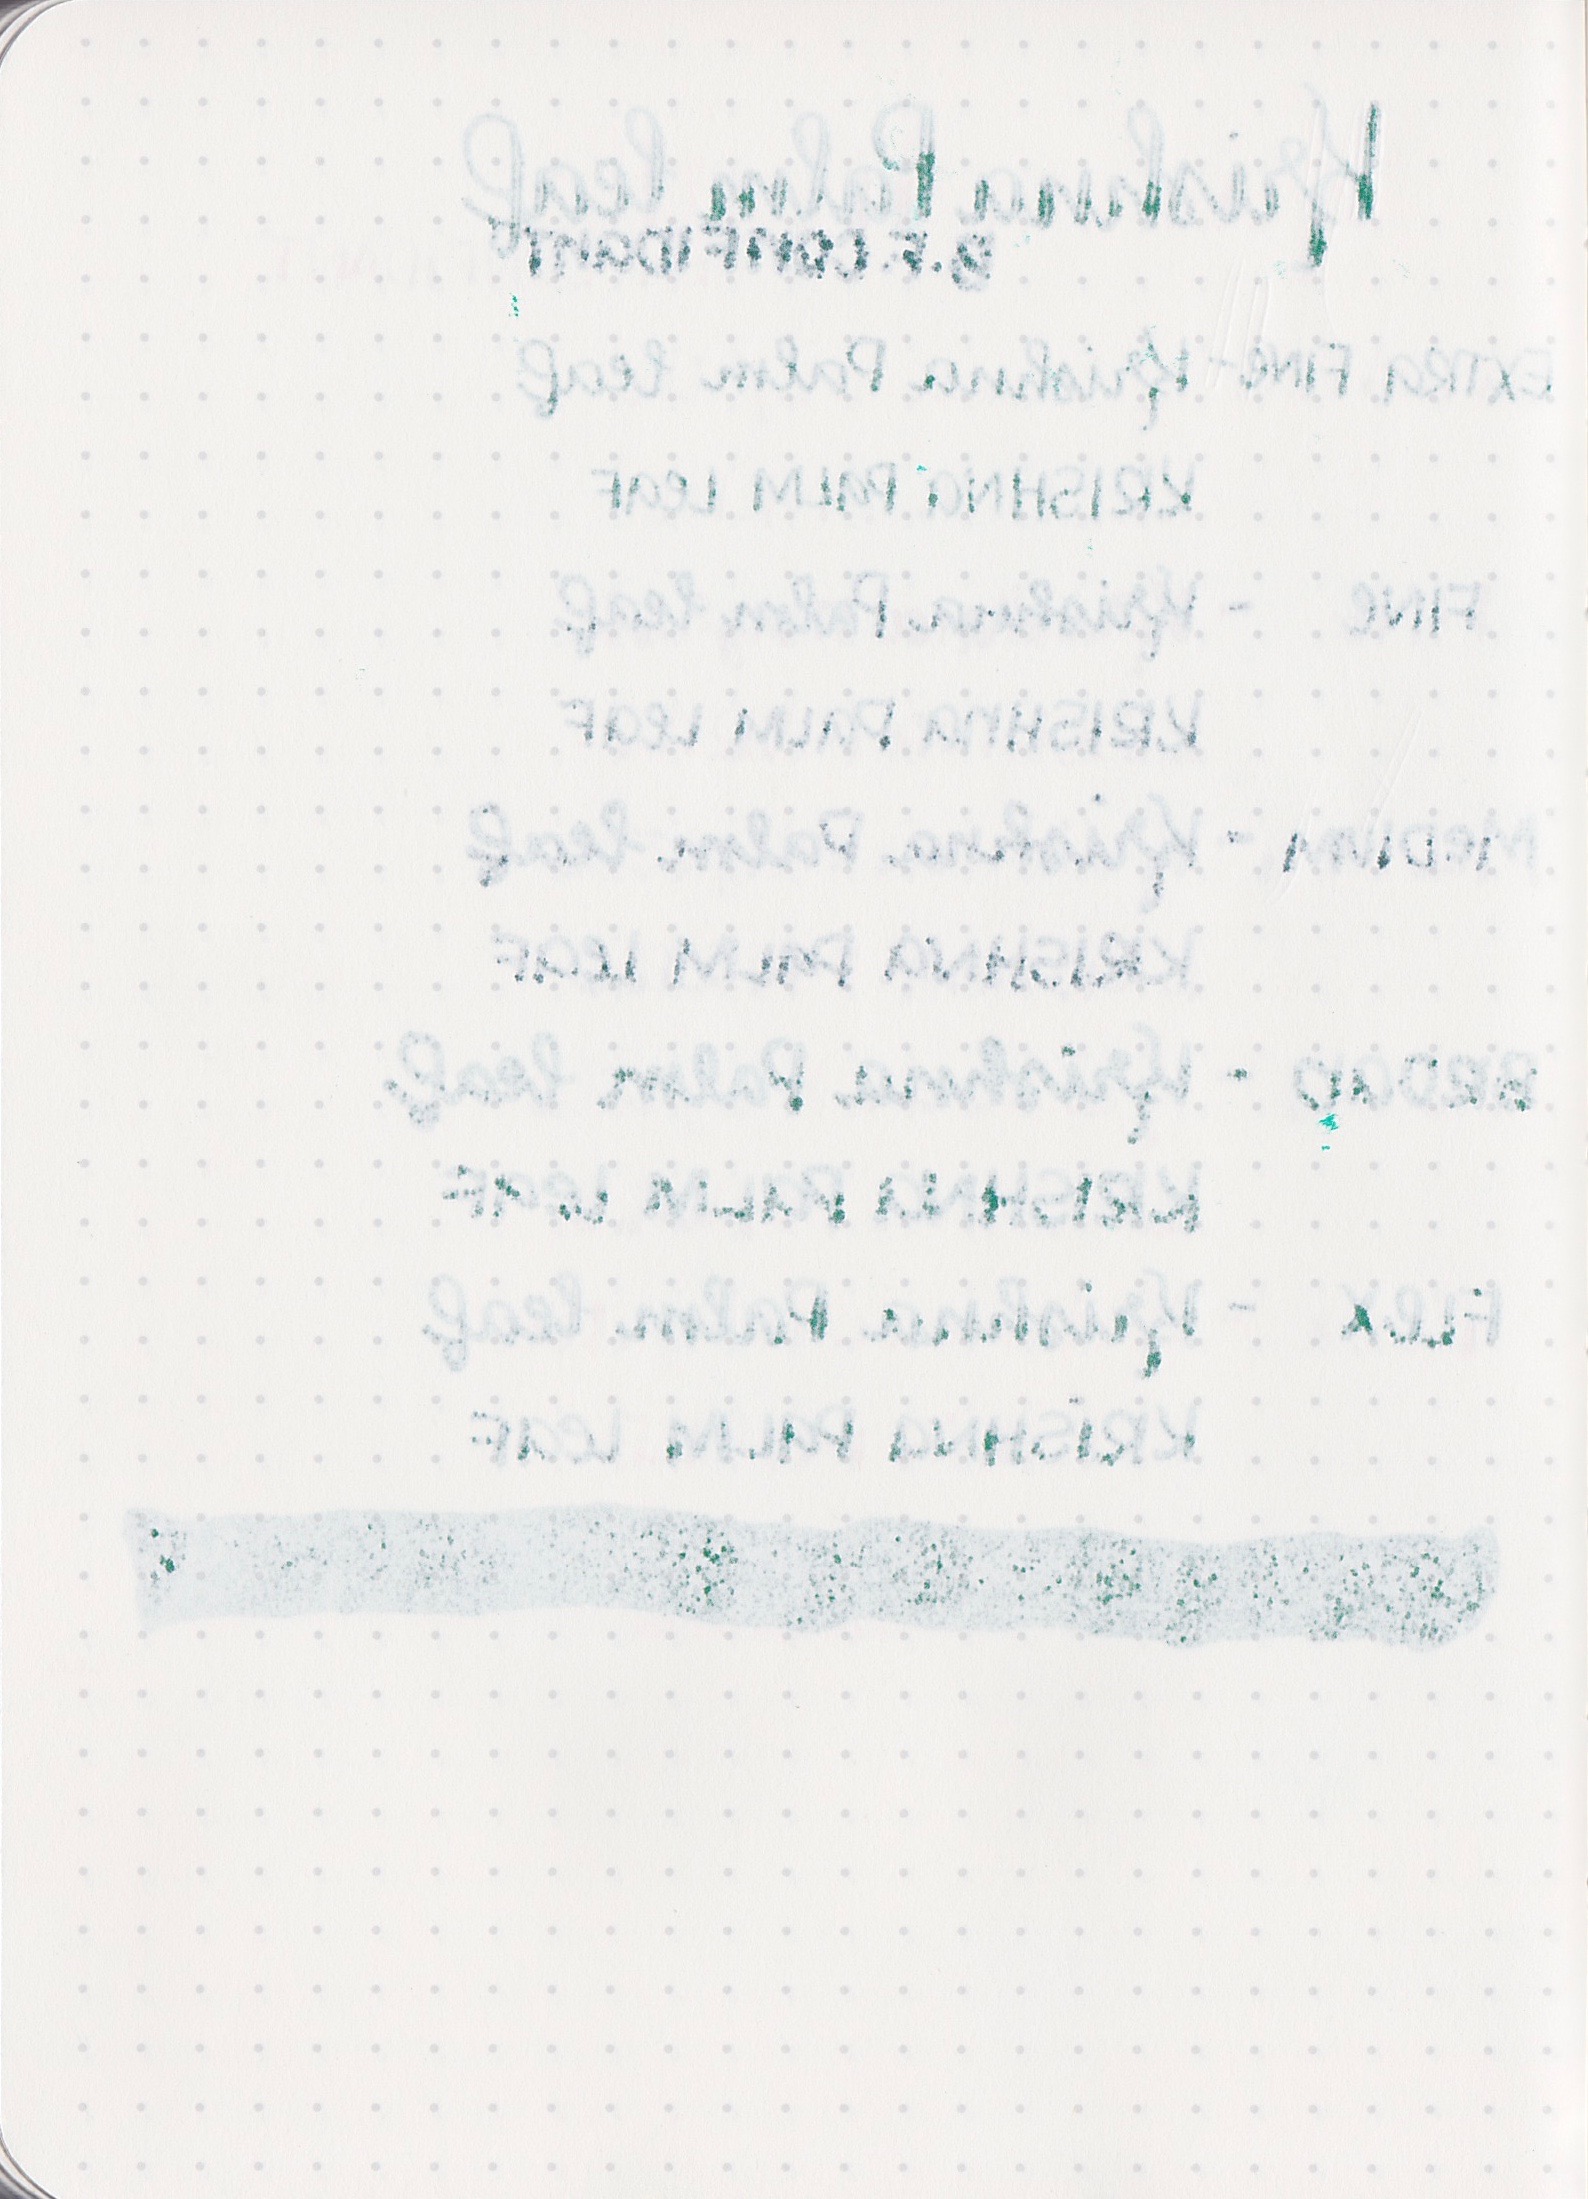 Krishna Palm leaf
B.F. CONFIDANT
EXTRA FINE - Krishna Palm leaf
KRISHNA PALM LEAF
FINE - Krishna Palm leaf
KRISHNA PALM LEAF
MEDIUM - Krishna Palm leaf
KRISHNA PALM LEAF
BROAD - Krishna Palm leaf
KRISHNA PALM LEAF
FLEX - Krishna Palm leaf
KRISHNA PALM LEAF